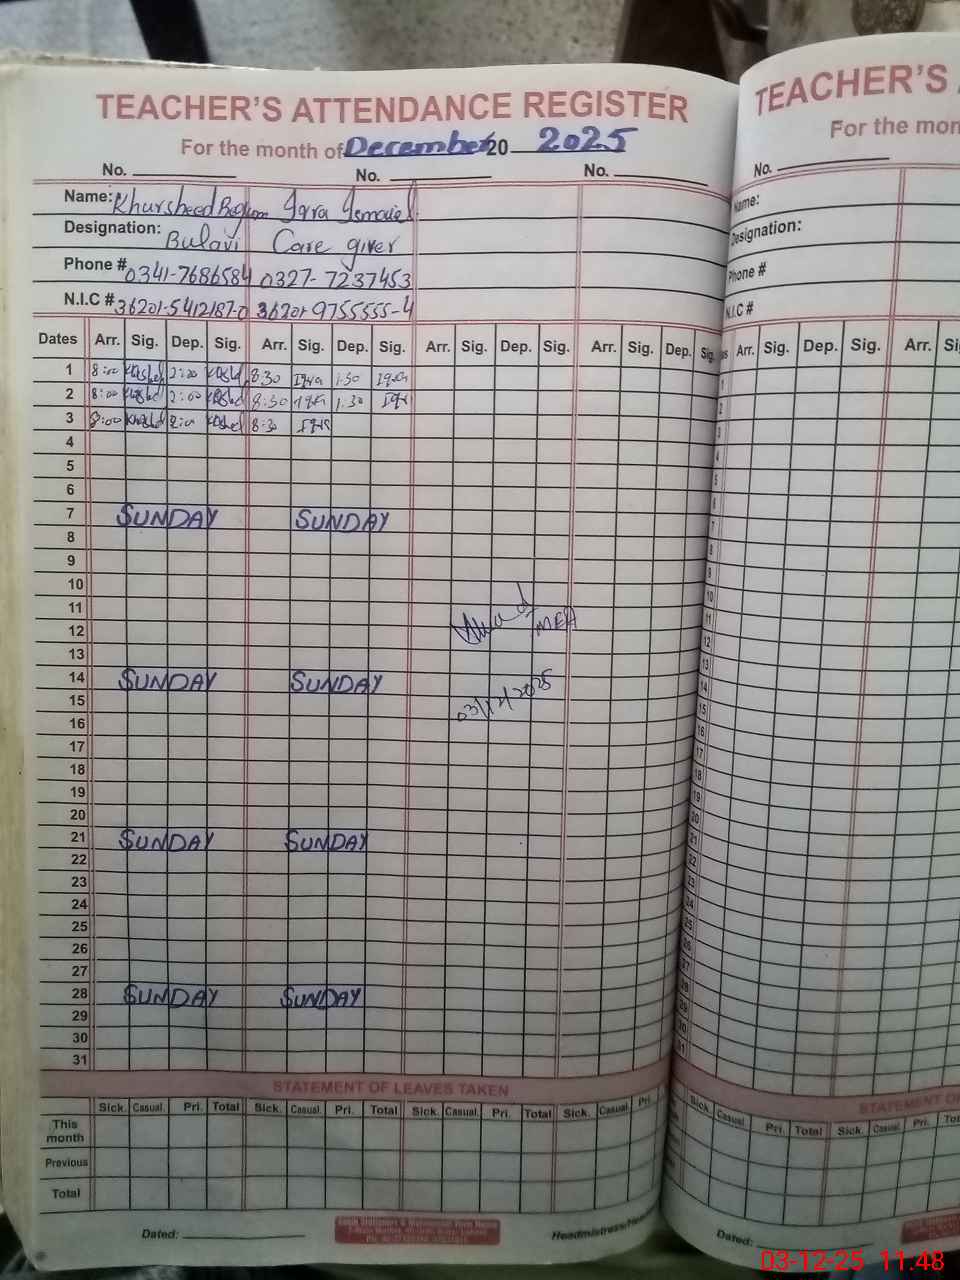 TEACHER'S ATTENDANCE REGISTER
For the month of December 20 2025
No. No. No.
Name: Khursheed Begum Iqra Ismaiel
Designation: Bulavi Care giver
Phone # 0341-7686584 0327-7237453
N.I.C # 36201-5412187-0 36201-9755555-4
Dates Arr. Sig. Dep. Sig. Arr. Sig. Dep. Sig. Arr. Sig. Dep. Sig. Arr. Sig. Dep. Sig.
1 8:00 2:00 8:30 Iqra 1:30 Iqra
2 8:00 2:00 8:30 Iqra 1:30 Iqra
3 8:00 2:00 8:30 Iqra
4
5
6
7 SUNDAY SUNDAY
8
9
10
11
12 MEA
13
14 SUNDAY SUNDAY
15 03/12/2025
16
17
18
19
20
21 SUNDAY SUNDAY
22
23
24
25
26
27
28 SUNDAY SUNDAY
29
30
31
STATEMENT OF LEAVES TAKEN
Sick. Casual. Pri. Total Sick. Casual. Pri. Total Sick. Casual. Pri. Total Sick. Casual. Pri.
This month
Previous
Total
Dated:
TEACHER'S
For the mon
No.
Name:
Designation:
Phone #
N.I.C #
Arr. Sig. Dep. Sig. Arr.
1
2
3
4
5
6
7
8
9
10
11
12
13
14
15
16
17
18
19
20
21
22
23
24
25
26
27
28
29
30
31
STATEMENT O
Sick. Casual. Pri. Total Sick. Casual. Pri.
Dated:
03-12-25 11.48